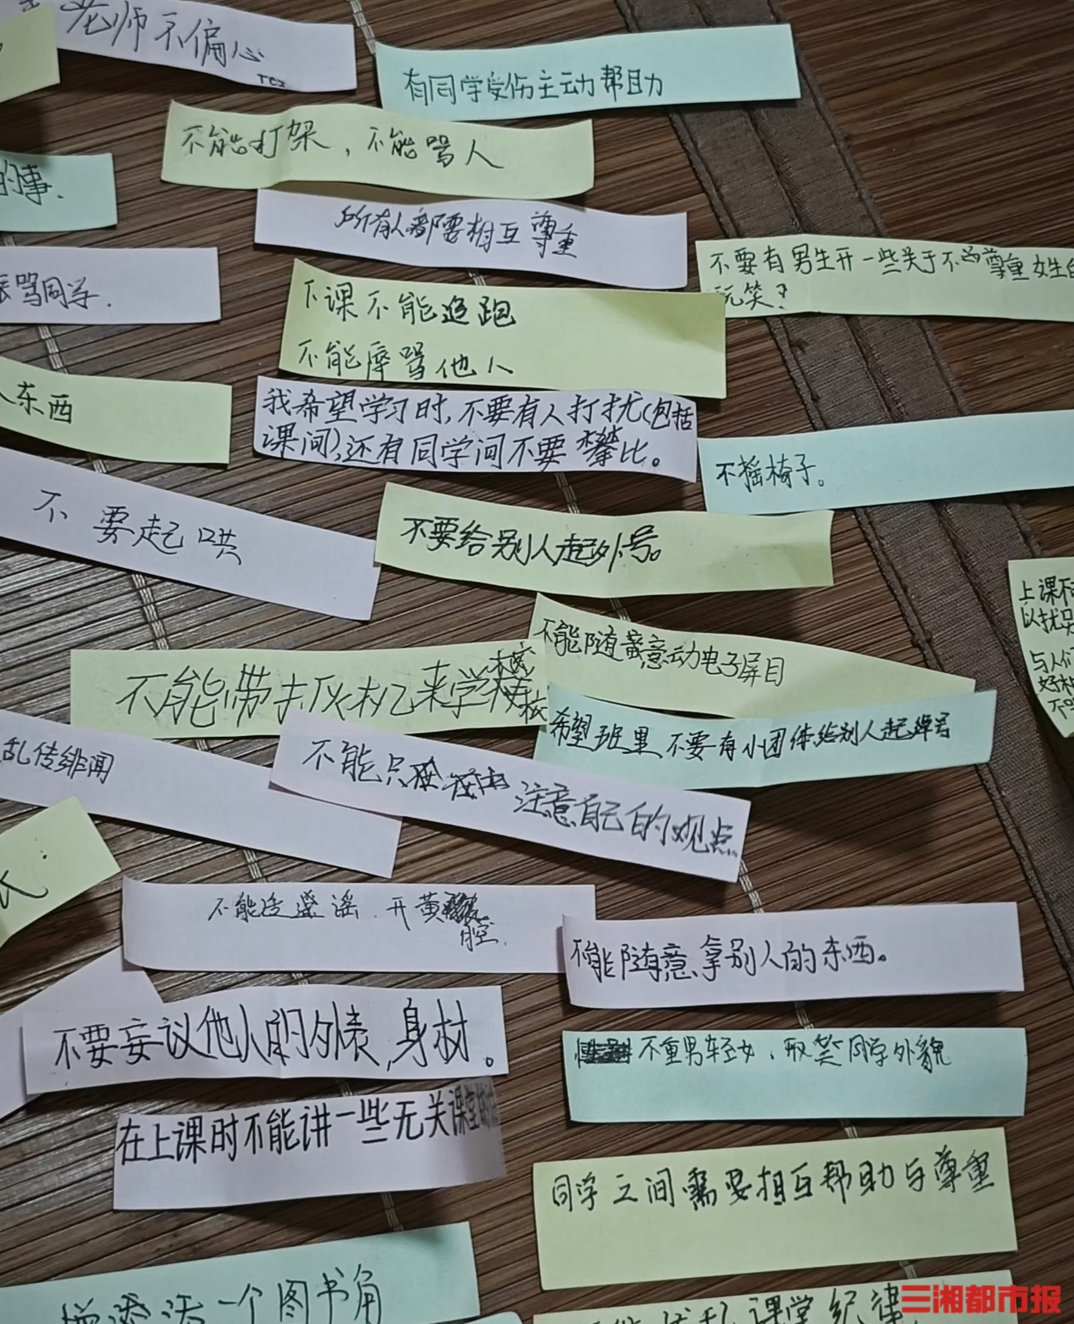 老师不偏心
有同学受伤主动帮助
不能打架，不能骂人
的事.
所有人都要相互尊重
骂同学.
不要有男生开一些关于不尊重女生
玩笑?
下课不能追跑
不能辱骂他人
东西
我希望学习时,不要有人打扰(包括
课间),还有同学间不要攀比。
不摇椅子。
不要起哄
不要给别人起外号。
上课不
以扰
与人们
好相
不能随意动电子屏目
不能带打火机来学校
希望班里不要有小团体给别人起绰号
乱传绯闻
不能只 注意自己的观点
不能造 谣.开黄
腔.
不能随意拿别人的东西。
不要妄议他人的外表,身材。
不重男轻女,取笑同学外貌
在上课时不能讲一些无关课堂
同学之间需要相互帮助与尊重
增添 一个图书角
乱课堂纪律
三湘都市报